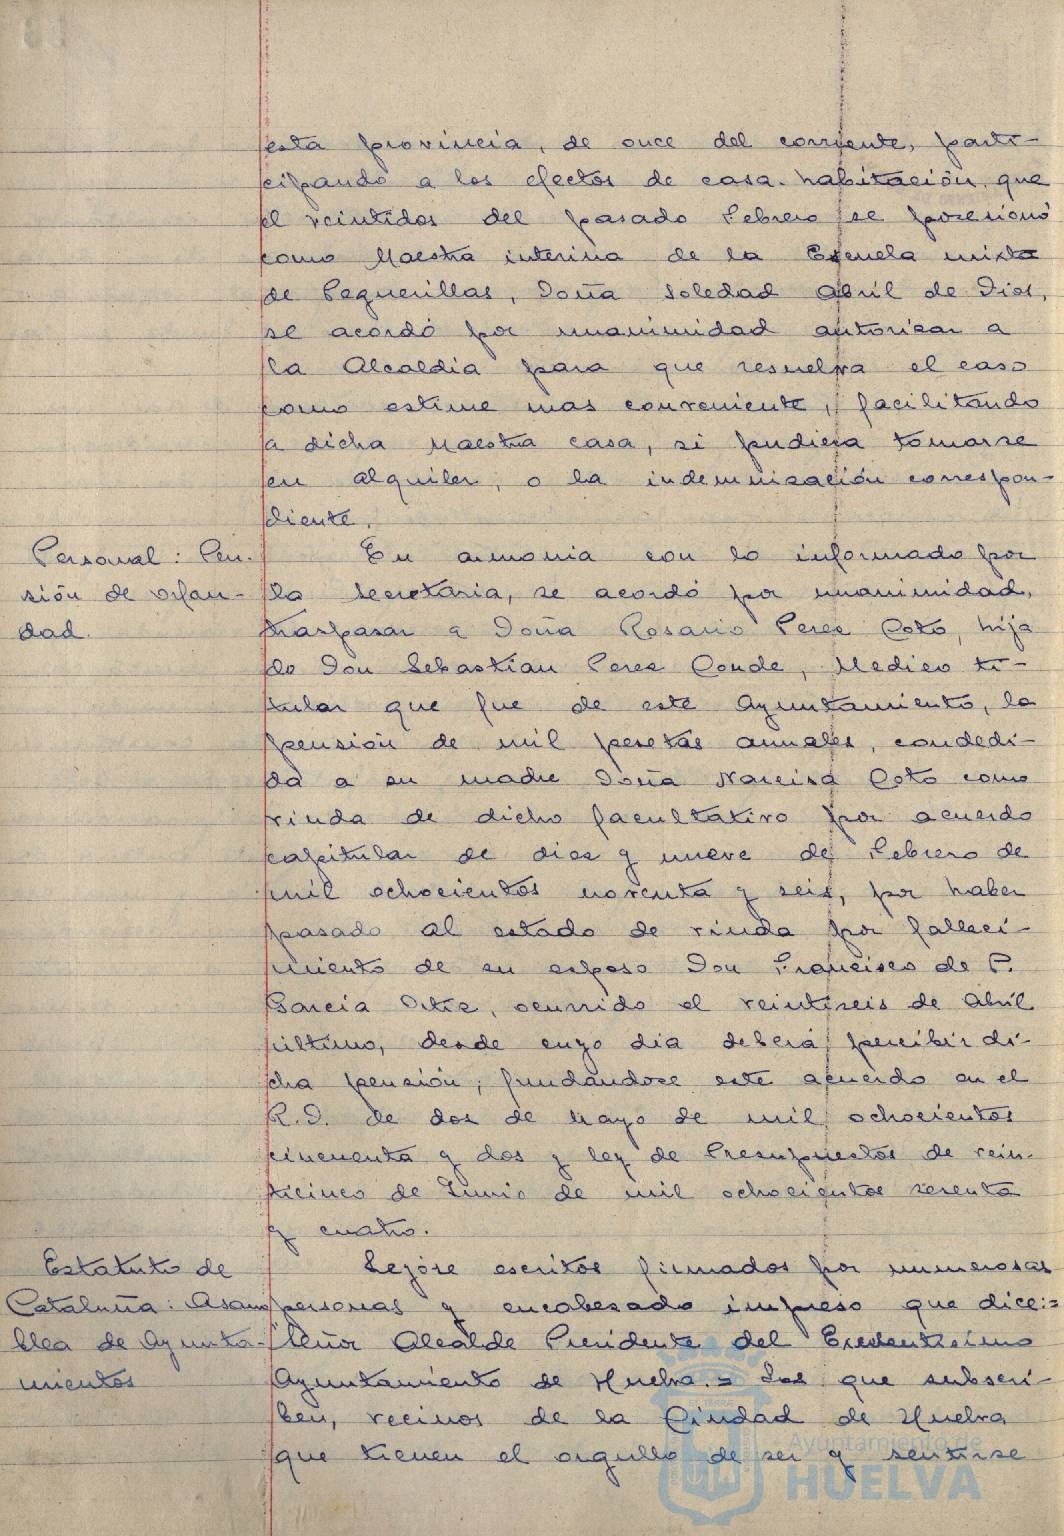 esta provincia, de once del corriente, parti-
cipando a los efectos de casa-habitación, que
el veintidos del pasado Febrero se posesionó
como Maestra interina de la Escuela mixta
de Peguerillas, Doña Soledad Abril de Dios,
se acordó por unanimidad autorizar a
la Alcaldia para que resuelva el caso
como estime mas conveniente, facilitando
a dicha Maestra casa, si pudiera tomarse
en alquiler, o la indemnización correspon-
diente.
Personal: Pen-
sión de orfan-
dad.
En armonia con lo informado por
la Secretaria, se acordó por unanimidad,
traspasar a Doña Rosario Perez Coto, hija
de Don Sebastian Perez Conde, Medico ti-
tular que fue de este Ayuntamiento, la
pensión de mil pesetas anuales, condedi-
da a su madre Doña Narcisa Coto como
viuda de dicho facultativo por acuerdo
capitular de diez y nueve de Febrero de
mil ochocientos noventa y seis, por haber
pasado al estado de viuda por falleci-
miento de su esposo Don Francisco de P.
García Ortiz, ocurrido el veintiseis de Abril
último, desde cuyo dia deberá percibir di-
cha pensión, fundándose este acuerdo en el
R.D. de dos de Mayo de mil ochocientos
cincuenta y dos y ley de Presupuestos de vein-
ticinco de Junio de mil ochocientos sesenta
y cuatro.
Estatuto de
Cataluña: Asam
blea de Ayunta-
mientos
Leyóse escritos firmados por numerosas
personas y encabezado impreso que dice:=
Señor Alcalde Presidente del Excelentisimo
Ayuntamiento de Huelva.= Los que subscri-
ben, vecinos de la Ciudad de Huelva
que tienen el orgullo de ser y sentirse
Ayuntamiento de
HUELVA